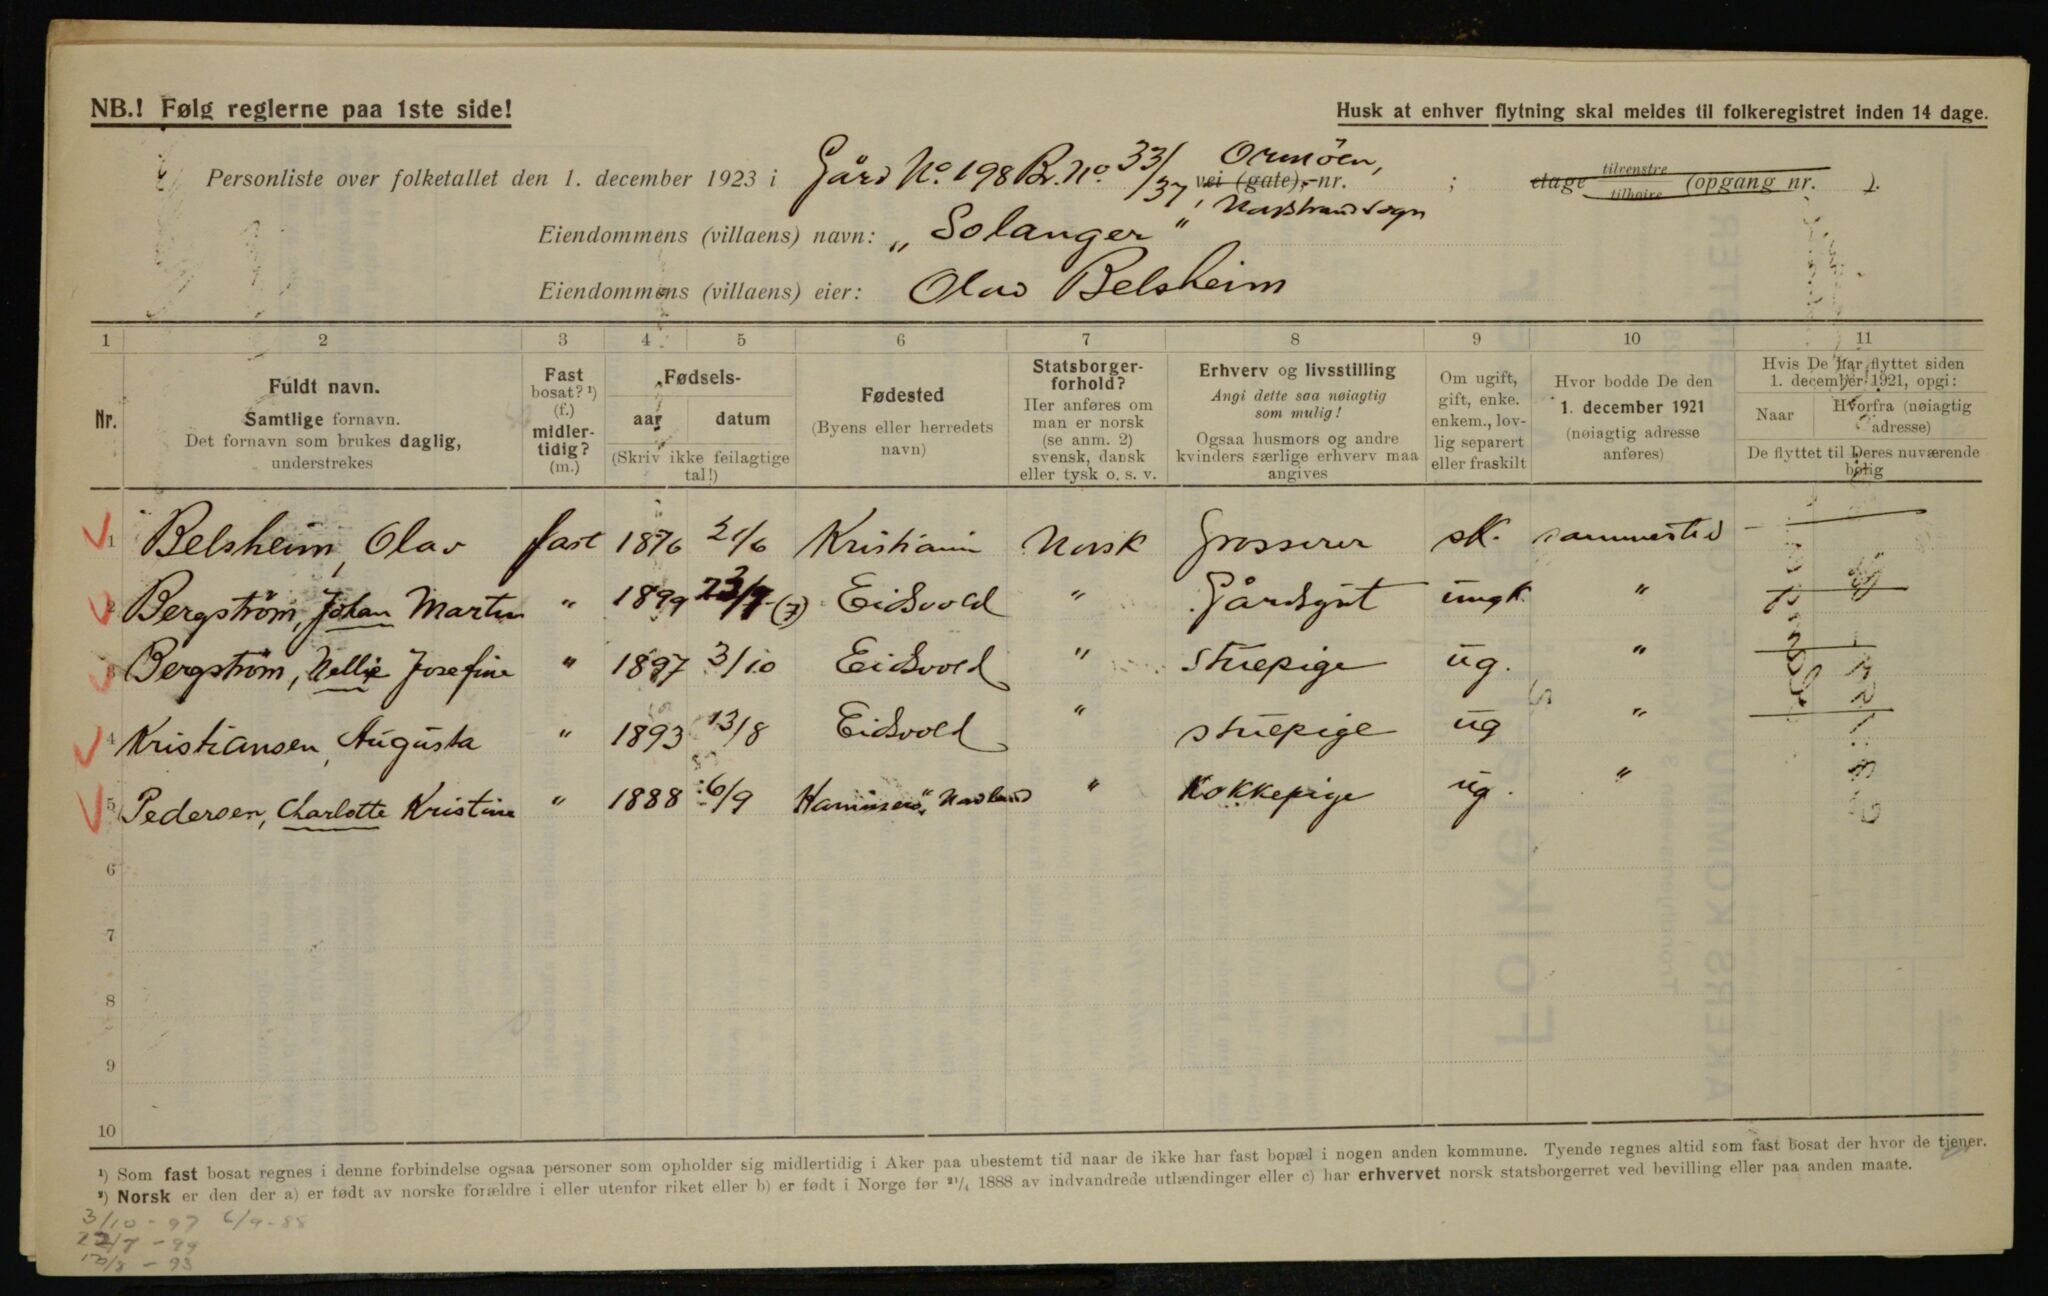 NB.! Følg reglerne paa 1ste side!
Husk at enhver flytning skal meldes til folkeregistret inden 14 dage.
Personliste over folketallet den 1. december 1923 i Gård No. 198 Br. No. 33/37, Ormöen, vei (gate), -nr. ; etage tilvenstre tilhøire (opgang nr. ).
Eiendommens (villaens) navn: „Solanger"
Eiendommens (villaens) eier: Olav Belsheim
1 2 3 4 5 6 7 8 9 10 11
Nr.
Fuldt navn.
Samtlige fornavn.
Det fornavn som brukes daglig,
understrekes
Fast
bosat? ¹)
(f.)
midler-
tidig?
(m.)
Fødsels-
aar datum
(Skriv ikke feilagtige
tal!)
Fødested
(Byens eller herredets
navn)
Statsborger-
forhold?
Her anføres om
man er norsk
(se anm. 2)
svensk, dansk
eller tysk o. s. v.
Erhverv og livsstilling
Angi dette saa nøiagtig
som mulig!
Ogsaa husmors og andre
kvinders særlige erhverv maa
angives
Om ugift,
gift, enke.
enkem., lov-
lig separert
eller fraskilt
Hvor bodde De den
1. december 1921
(nøiagtig adresse
anføres)
Hvis De har flyttet siden
1. december 1921, opgi:
Naar
Hvorfra (nøiagtig
adresse)
De flyttet til Deres nuværende
bolig
1 Belsheim, Olav fast 1876 21/6 Kristiania Norsk Grosserer sk. sammested
2 Bergström, Johan Martin " 1899 (7) Eidsvold " Gårdsgut ungk. "
3 Bergström, Nellie Josefine " 1897 3/10 Eidsvold " Stuepige ug. "
4 Kristiansen, Augusta " 1893 13/8 Eidsvold " stuepige ug "
5 Pedersen, Charlotte Kristine " 1888 6/9 Nordland " Kokkepige ug. "
6
7
8
9
10
¹) Som fast bosat regnes i denne forbindelse ogsaa personer som opholder sig midlertidig i Aker paa ubestemt tid naar de ikke har fast bopæl i nogen anden kommune. Tyende regnes altid som fast bosat der hvor de tjener.
²) Norsk er den der a) er født av norske forældre i eller utenfor riket eller b) er født i Norge før ²¹/₄ 1888 av indvandrede utlændinger eller c) har erhvervet norsk statsborgerret ved bevilling eller paa anden maate.
3/10 - 97 6/9-88
22/7 - 99
13/8 - 93